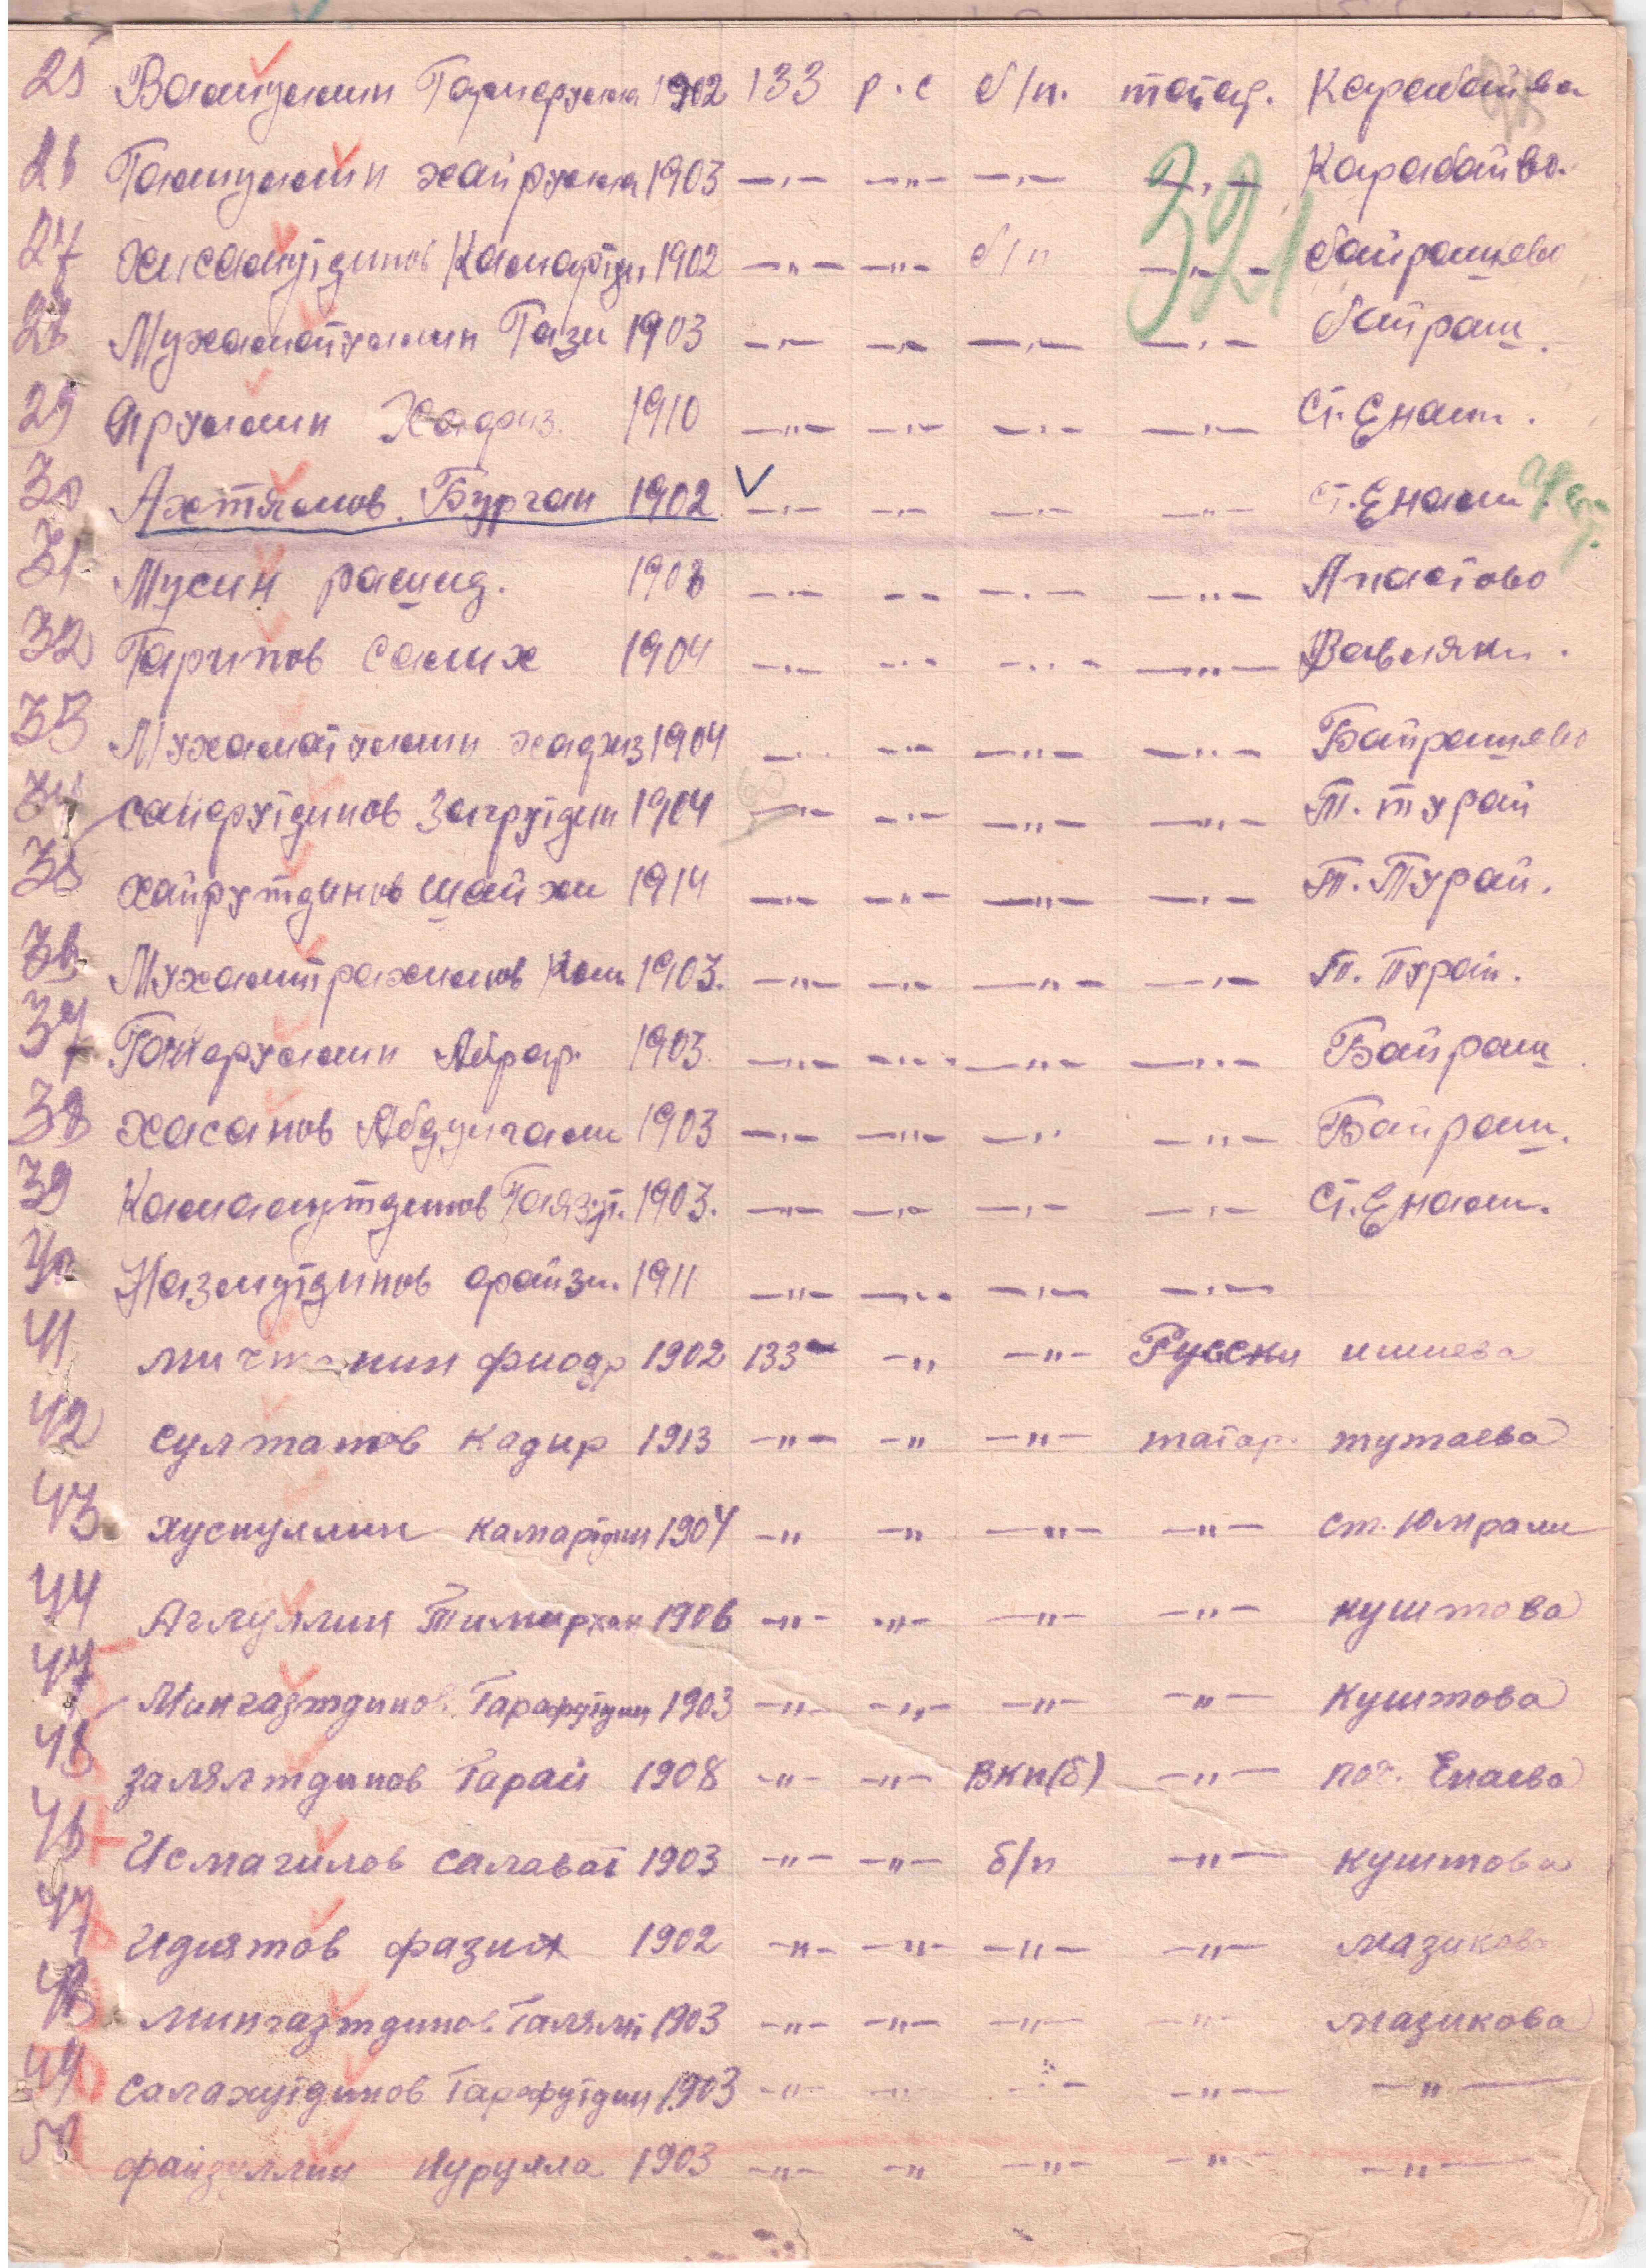 25 Валиуллин 1902 133 р.с б/п. татар. Карабаева
26 Галиуллин хайрулла 1903 —„— —„— —„— —„— Карабаево.
27 Хисамутдинов Камартди 1902 —„— —„— б/п —„— байрашево
28 Мухаматуллин Гази 1903 —„— —„— —„— —„— байраш.
321
29 Яруллин Хафиз. 1910 —„— —„— —„— —„— Ст. Енали.
30 Ахтямов. Бурган 1902 —„— —„— —„— —„— Ст. Енали
31 Мусин рашид. 1908 —„— —„— —„— —„— Апастово
32 Гарипов Салих 1904 —„— —„— —„— —„—
33 Мухаматуллин хафиз 1904 —„— —„— —„— —„— Байрашево
34 сайфутдинов 1904 —„— —„— —„— —„— Т. турай
35 хайрутдинов шайхи 1914 —„— —„— —„— —„— Т. Турай.
36 Мухамитрахимов Кали 1903. —„— —„— —„— —„— Т. Турай.
37 1903. —„— —„— —„— —„— Байраш
38 хасанов Абдулгали 1903 —„— —„— —„— —„— Байраш.
39 Камалутдинов Гаязут. 1903. —„— —„— —„— —„— Ст. Енали.
40 Назмутдинов файзи. 1911 —„— —„— —„— —„—
41 фиодр 1902 133 —„ —„— Русски ишиева
42 султанов кадир 1913 —„— —„ —„— татар. тутаева
43 хуснуллин камартдин 1904 —„ —„ —„— —„— ст. Юмрали
44 Аглуллин Тимирхан 1906 —„— —„— —„— —„— куштова
44 Мингазтдинов. Гарафутдин 1903 —„— —„— —„— —„— куштова
45 залялтдинов Гарай 1908 —„— —„— ВКП(б) —„— Енаева
46 Исмагилов салават 1903 —„— —„— б/п —„— куштова
47 Идиятов фазил 1902 —„— —„— —„— —„— мазикова
48 мингазтдинов Галялт 1903 —„— —„— —„— —„— мазикова
49 салахутдинов Гарафутдин 1903 —„— —„— —„— —„— —„—
50 файзуллин Нурулла 1903 —„— —„ —„— —„— —„—